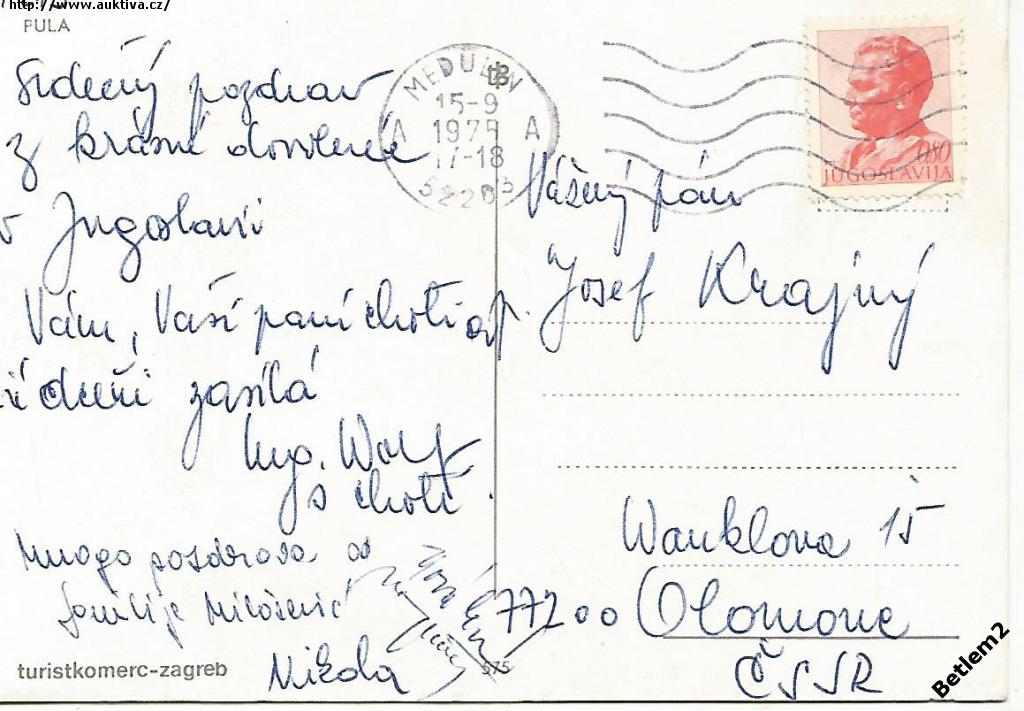 http://www.auktiva.cz/
PULA
Srdečný pozdrav
z krásné dovolené
v Jugoslavii
Vám, Vaší paní choti a p.
dceři zasílá
Ing. Wolf
s chotí.
Mnogo pozdrava od
familije Milošević
Nikola
turistkomerc-zagreb
575
MEDULIN
15-9
1975
17-18
A A
52203
0,80
JUGOSLAVIJA
Vážený pán
Josef Krajný
Wanklova 15
77200 Olomouc
ČSSR
Betlem2